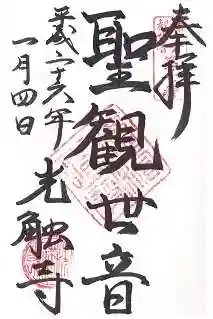 奉拝
聖観世音
平成二十六年
一月四日
光触寺